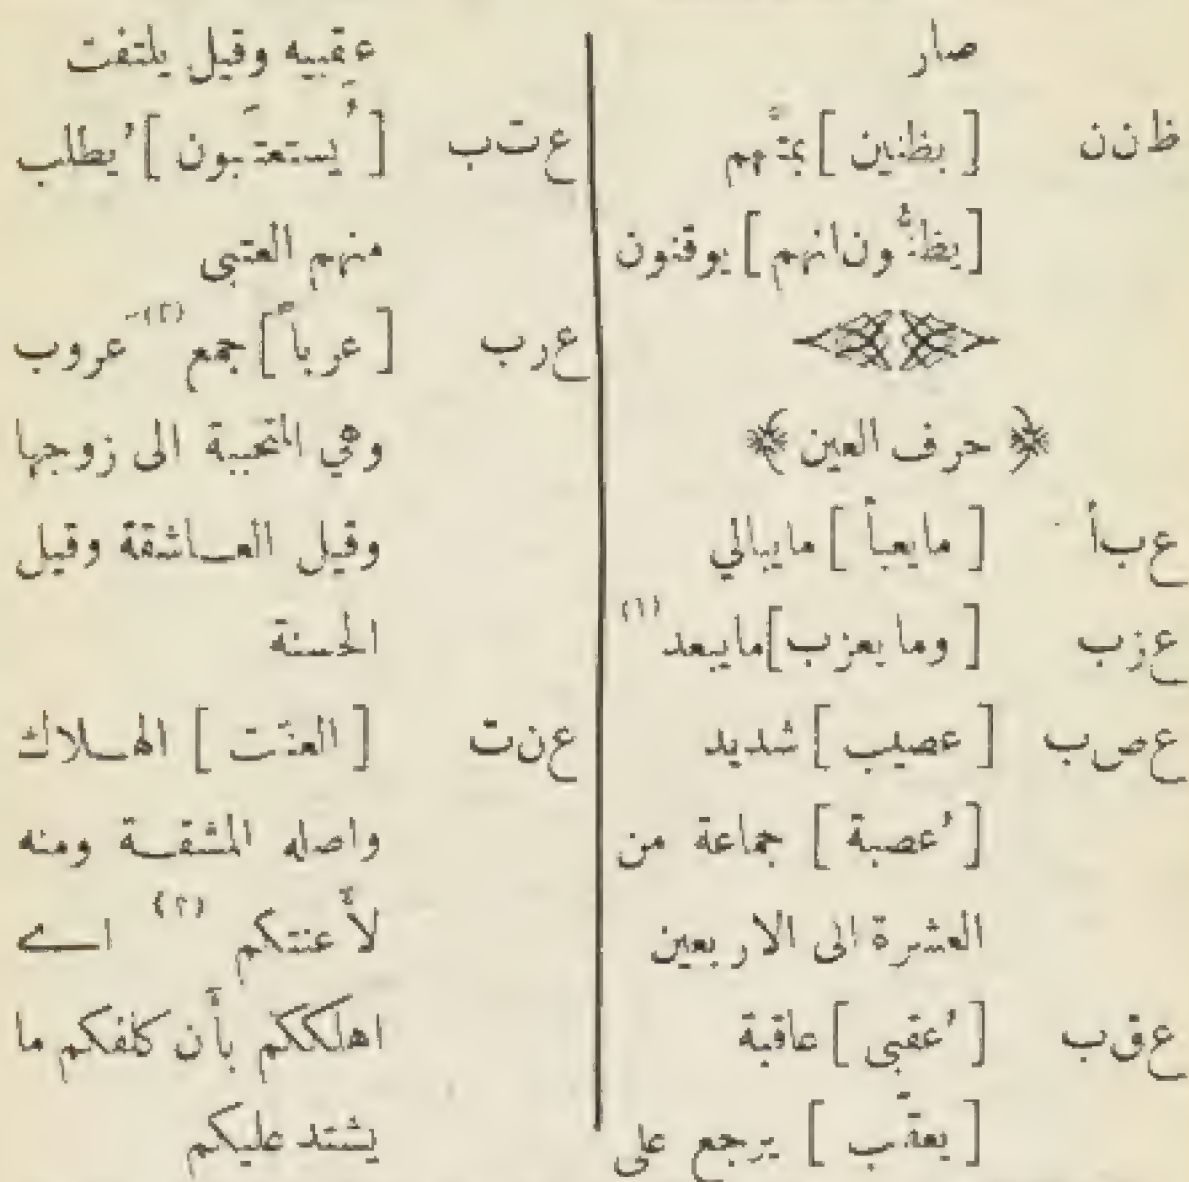 صار
ظ ن ن [ بظنين ] بمتَّهم
[ يظنُّون انهم ] يوقنون
﴿ حرف العين ﴾
ع ب أ [ ما يعبأ ] ما يبالي
ع ز ب [ وما يعزب ] ما يبعد (١)
ع ص ب [ عصيب ] شديد
[ عُصبة ] جماعة من
العشرة الى الاربعين
ع ق ب [ عُقبى ] عاقبة
[ يعقّب ] يرجع على
عقِبيه وقيل يلتفت
ع ت ب [ يُستعتَبون ] يُطلب
منهم العتبى
ع ر ب [ عرباً ] جمع (٢) عروب
وهي المتحببة الى زوجها
وقيل العاشقة وقيل
الحسنة
ع ن ت [ العنَت ] الهلاك
واصله المشقة ومنه
لأَعنتكم (٣) اي
اهلككم بأن كلفكم ما
يشتد عليكم